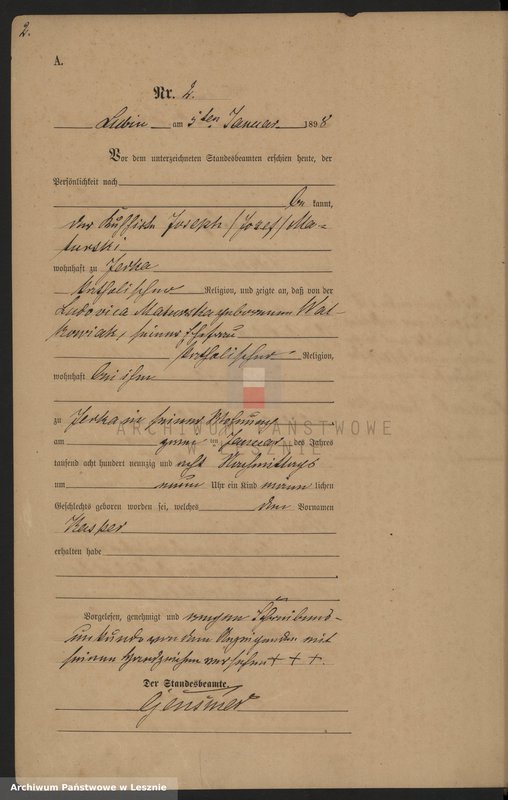 2.
A.
Nr. 2.
Lubin am 5ten Januar 1898
Vor dem unterzeichneten Standesbeamten erschien heute, der
Persönlichkeit nach
be kannt,
der Joseph /Jozef/ Ma-
turski
wohnhaft zu Jerka
katholischer Religion, und zeigte an, daß von der
Ludovica Maturska geborenen Wal-
kowiak, seiner Ehefrau
katholischer Religion,
wohnhaft bei ihm
zu Jerka in seiner Wohnung
am zwei ten Januar des Jahres
tausend acht hundert neunzig und acht Nachmittags
um neun Uhr ein Kind männ lichen
Geschlechts geboren worden sei, welches den Vornamen
Kasper
erhalten habe
Vorgelesen, genehmigt und wegen Schreibens-
unkunde von dem Anzeigenden mit
seinem Handzeichen versehen + + +.
Der Standesbeamte.
ARCHIWUM PAŃSTWOWE
W LESZNIE
Archiwum Państwowe w Lesznie